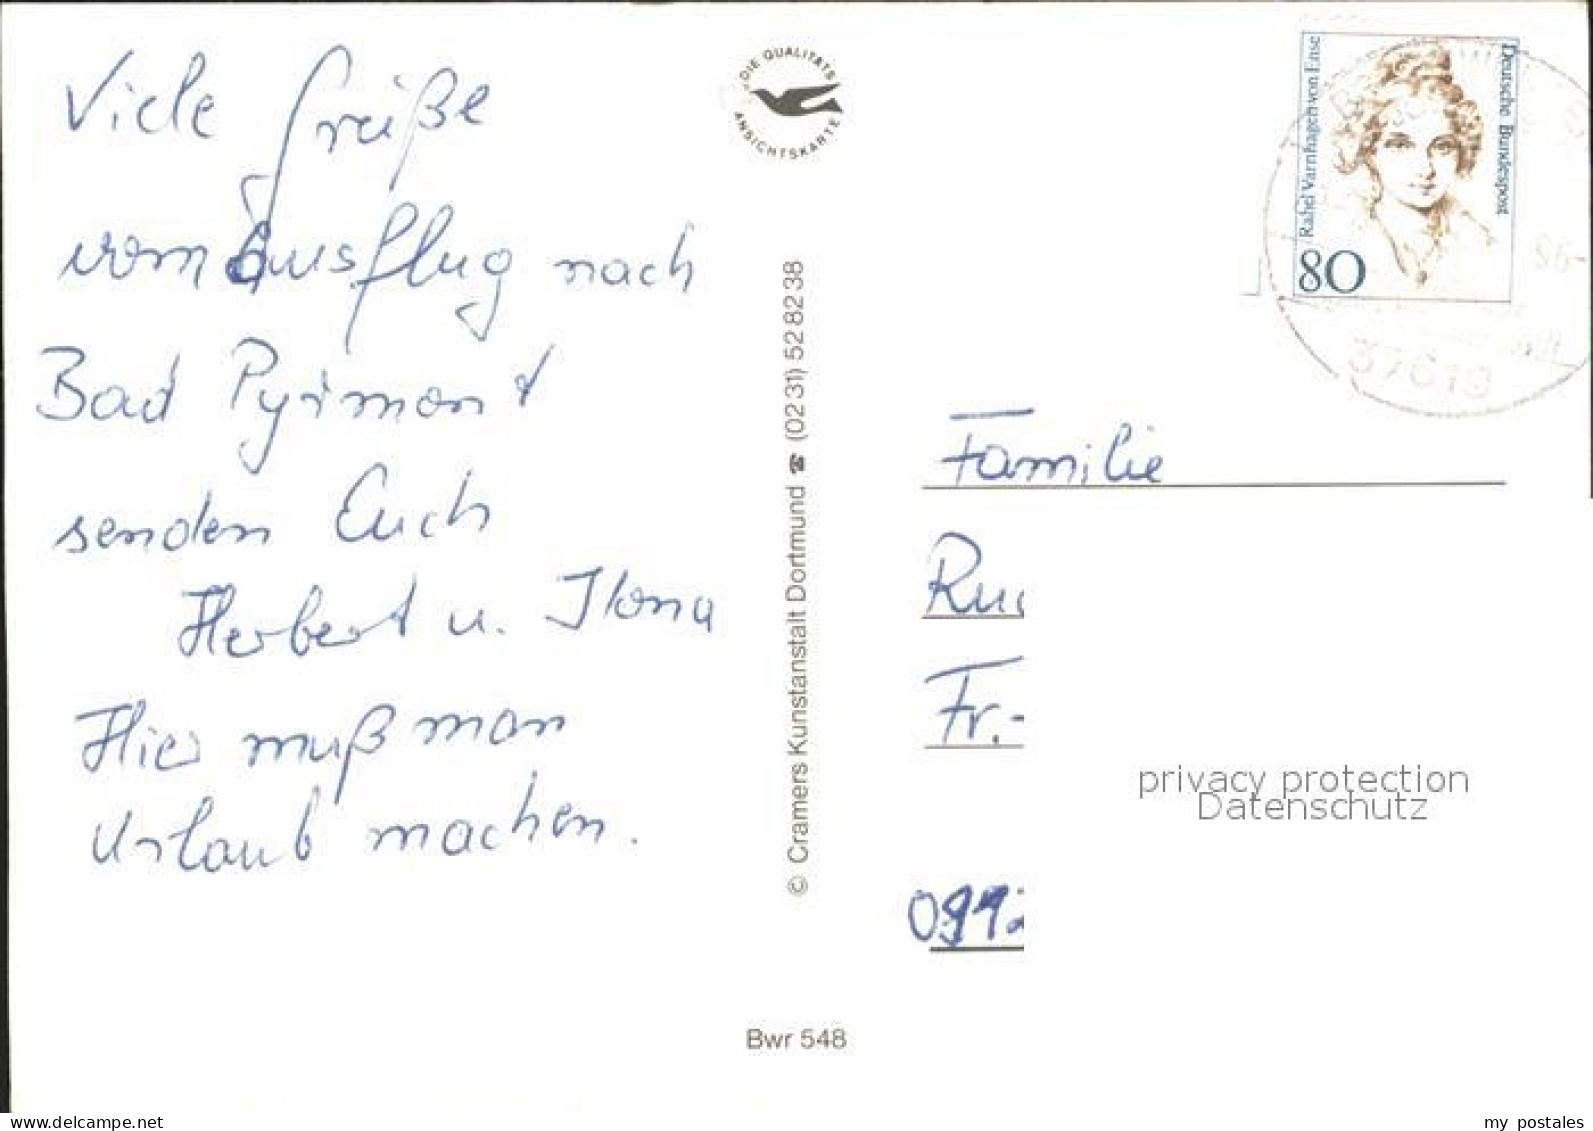 Viele Grüße
vom Ausflug nach
Bad Pyrmont
senden Euch
Herbert u. Ilona
Hier muß man
Urlaub machen.
DIE QUALITÄTS
ANSICHTSKARTE
© Cramers Kunstanstalt Dortmund ☎ (0231) 528238
Bwr 548
Rahel Varnhagen von Ense
Deutsche Bundespost
80
37619
96-
Familie
Fr.-
privacy protection
Datenschutz
www.delcampe.net
my_postales